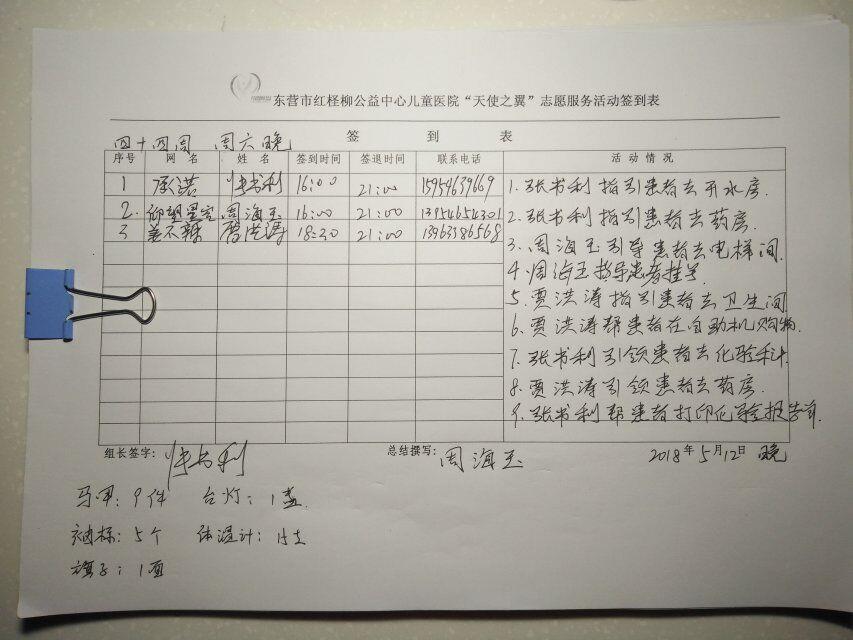 东营市红柽柳公益中心儿童医院“天使之翼”志愿服务活动签到表
签 到 表
四十四周 周六晚
序号 网 名 姓 名 签到时间 签退时间 联系电话 活 动 情 况
1 承诺 张书利 16:00 21:00 15954639669
2. 仰望星空 周海玉 16:00 21:00 13954654301
3 姜不辣 贾洪涛 18:30 21:00 13963386568
1. 张书利指引患者去开水房.
2. 张书利指引患者去药房.
3. 周海玉引导患者去电梯间.
4. 周海玉指导患者挂号
5. 贾洪涛指引患者去卫生间
6. 贾洪涛帮患者在自助机购物.
7. 张书利引领患者去化验科.
8. 贾洪涛引领患者去药房.
9. 张书利帮患者打印化验报告单.
组长签字: 张书利 总结撰写: 周海玉 2018年5月12日 晚
马甲: 9件 台灯: 1盏.
袖标: 5个 体温计: 15支
旗子: 1面